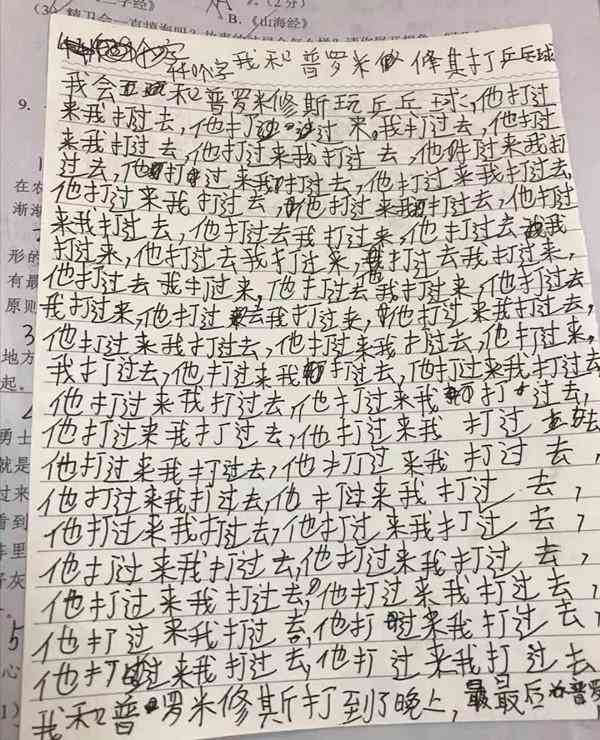 (3) 精卫会一直填海吗?
B.《山海经》
9.
我和普罗米修斯打乒乓球
我会和普罗米修斯玩乒乓球,他打过
来我打过去,他打过来。我打过去,他打过
来我打过去,他打过来我打过去,他打过来我打
过去,他打过来我打过去,他打过来我打过去,
他打过来我打过去,他打过来我打过去,他打过
来我打过去,他打过去我打过来,他打过去我
打过来,他打过去我打过来,他打过去我打过来,
他打过去我打过来,他打过去我打过来,他打过去
我打过来,他打过来我打过去,他打过来我打过去,
他打过来我打过去,他打过来我打过去,他打过来,
我打过去,他打过来我打过去,他打过来我打过去
他打过来我打过去,他打过来我打过去,
他打过来我打过去,他打过来我打过去
他打过来我打过去,他打过来我打过去,
他打过来我打过去,他打过来我打过去,
他打过来我打过去,他打过来我打过去,
他打过来我打过去,他打过来我打过去,
他打过来我打过去,他打过来我打过去,
他打过来我打过去,他打过来我打过去,
他打过来我打过去,他打过来我打过去
我和普罗米修斯打到了晚上,最最后普罗
在农
渐渐
形的
有最
原则
3
地方
起。
勇士
就是
过来
看到
5
心
1)